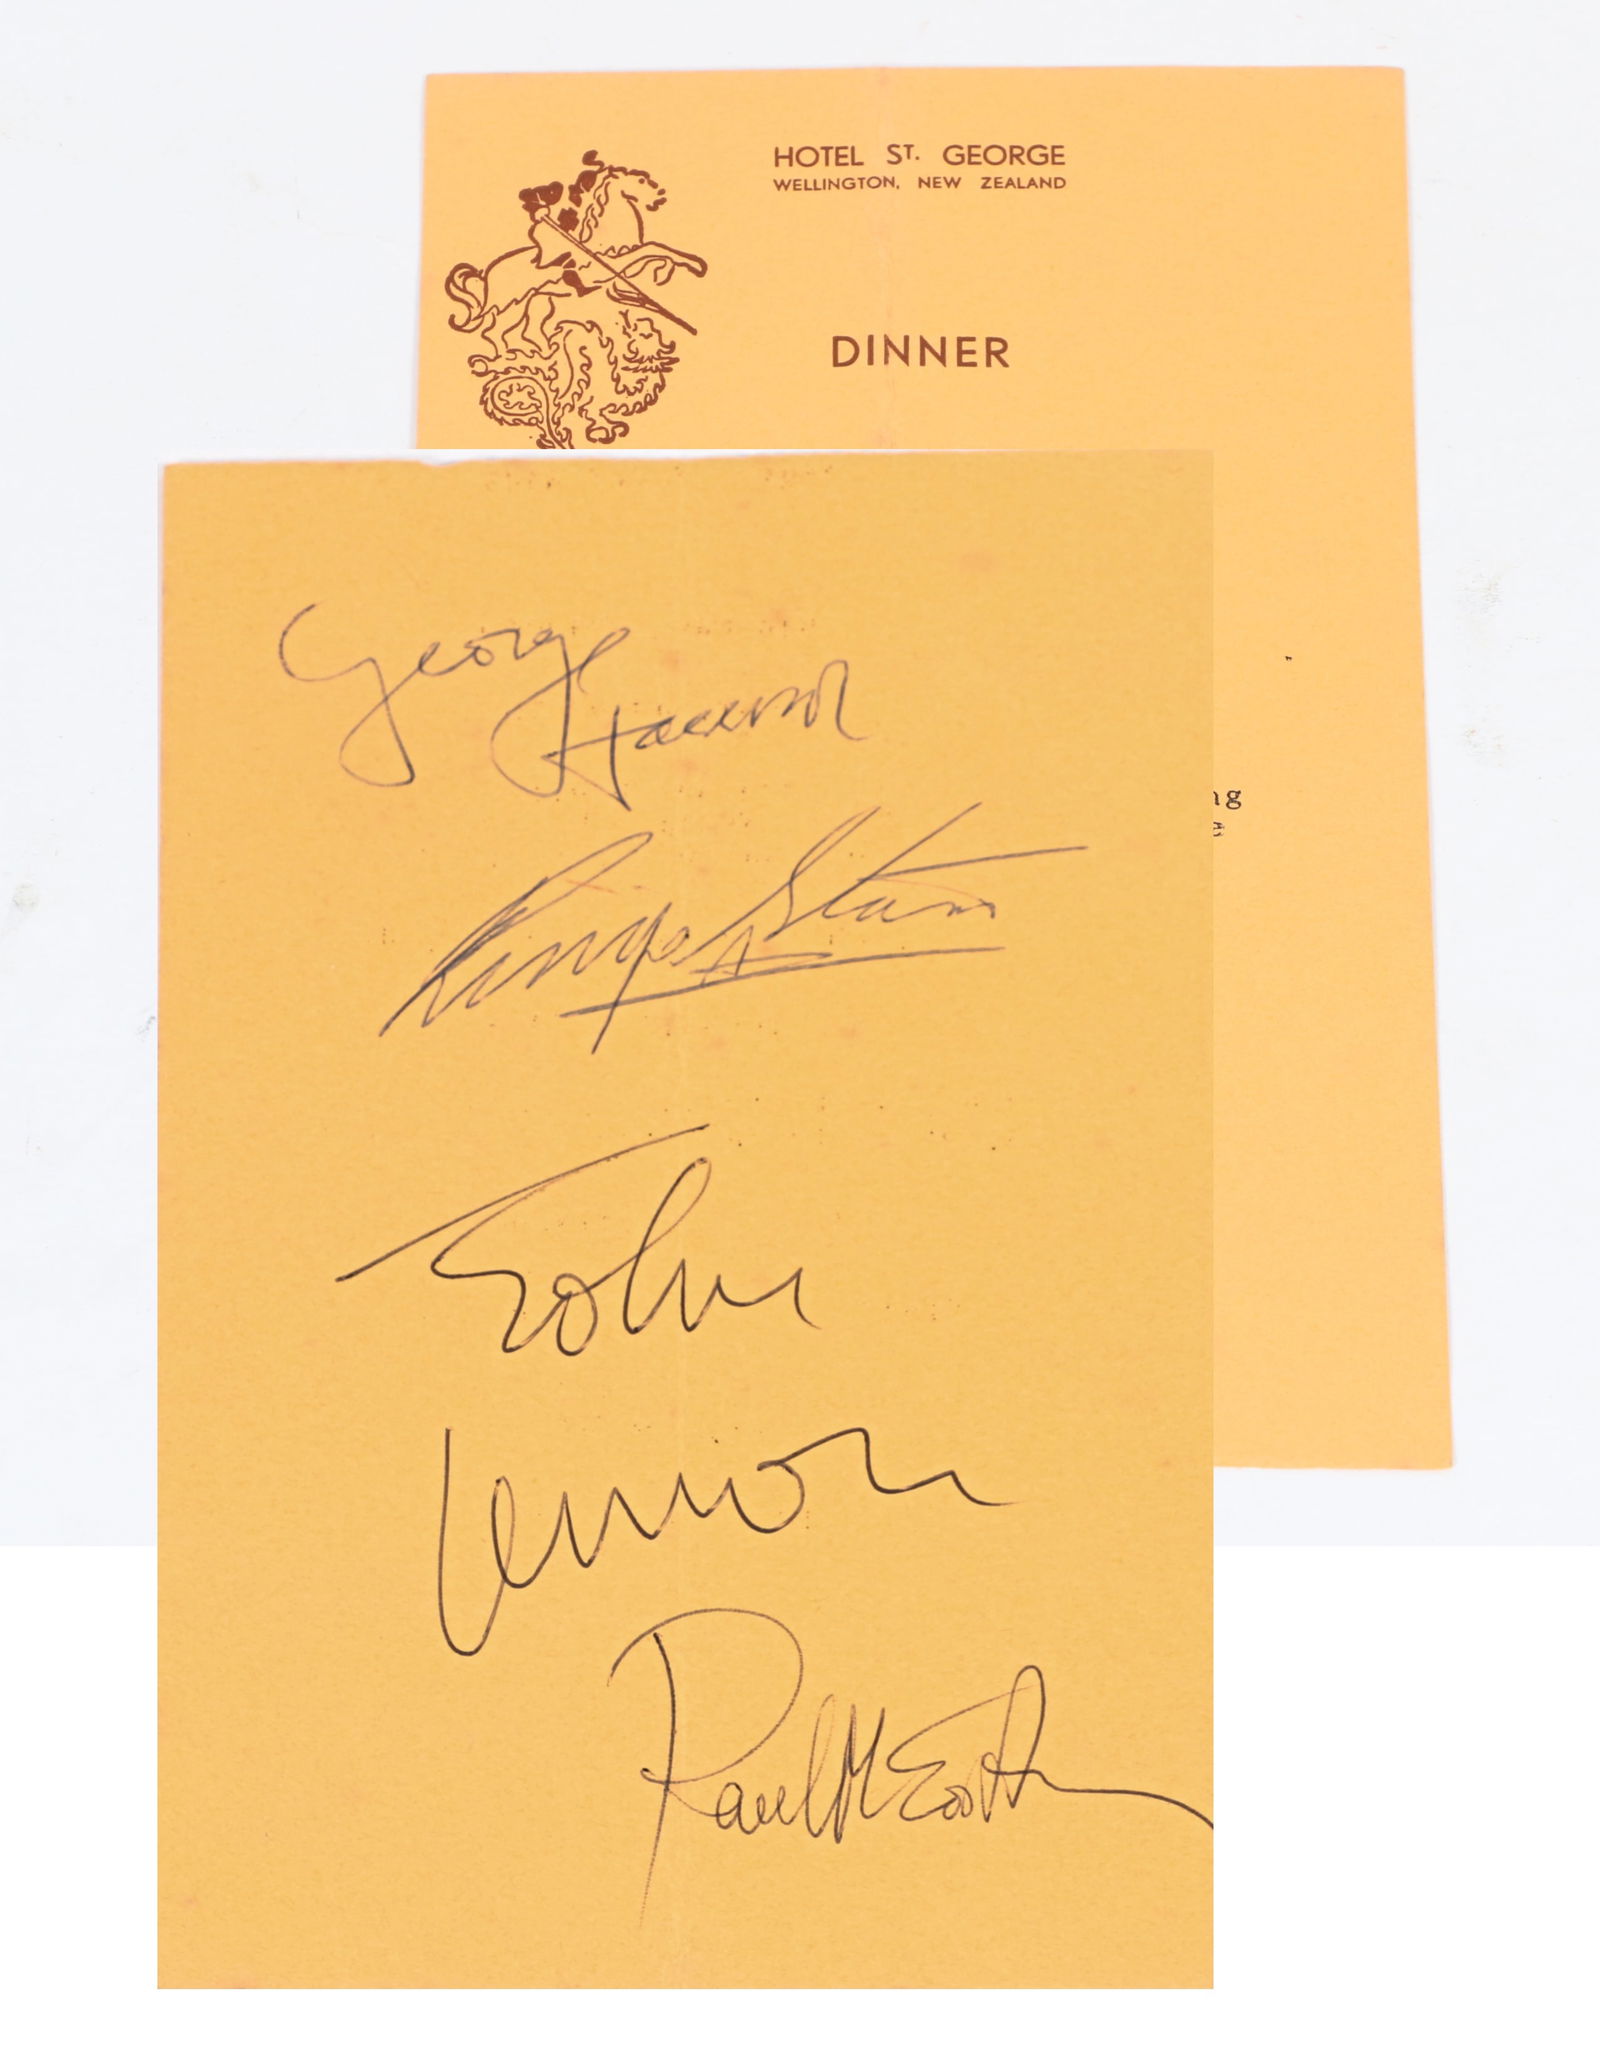 HOTEL ST. GEORGE
WELLINGTON, NEW ZEALAND
DINNER
George
Harrison
Ringo Starr
John
Lennon
Paul McCartney